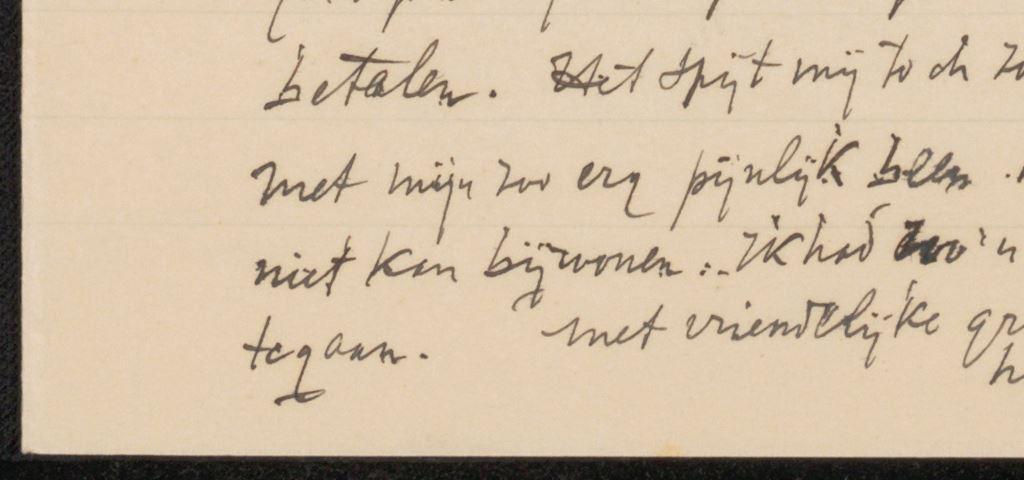 betalen. Het spijt mij toch
met mijn zoo erg pijnlijk been.
niet kan bijwonen... Ik had zoo'n
tegaan. met vriendelijke